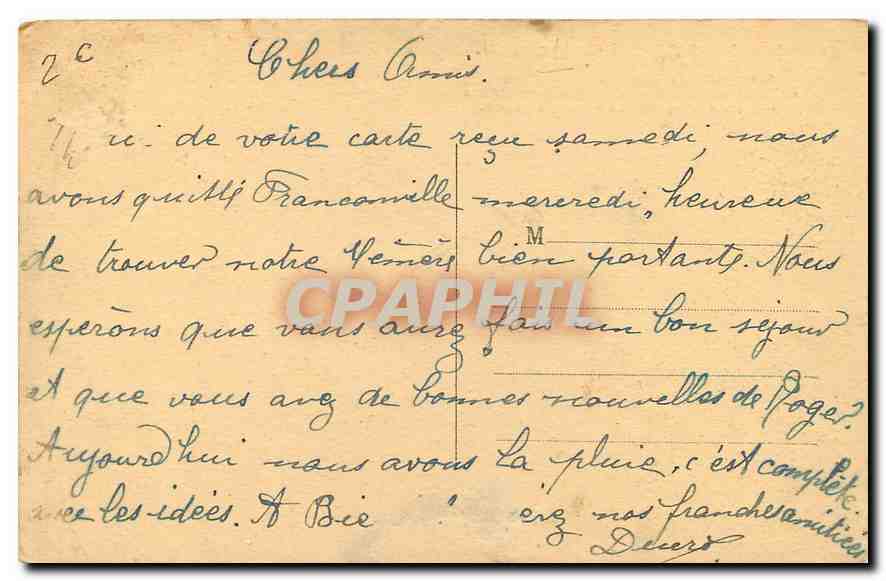 Chers Amis.
de votre carte reçu samedi, nous
avons quitté Franconville mercredi, heureux
M
de trouver notre Mémère bien portante. Nous
CPAPHIL
espérons que vous aurez fais un bon sejour
et que vous avez de bonnes nouvelles de Roger?
Aujourd'hui nous avons la pluie, c'est complété.
avec les idées. A Bie erez nos franches amitiées